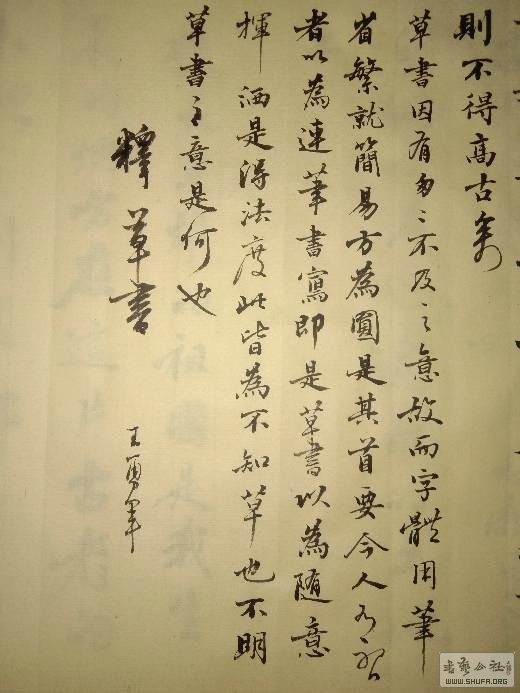 則不得高古矣
草書因有匆〻不及之意故而字體用筆
省繁就簡易方為圓是其首要今人
者以為連筆書寫即是草書以為隨意
揮洒是得法度此皆為不知草也不明
草書之意是何也
釋草書
王勇軍
書藝公社
WWW.SHUFA.ORG